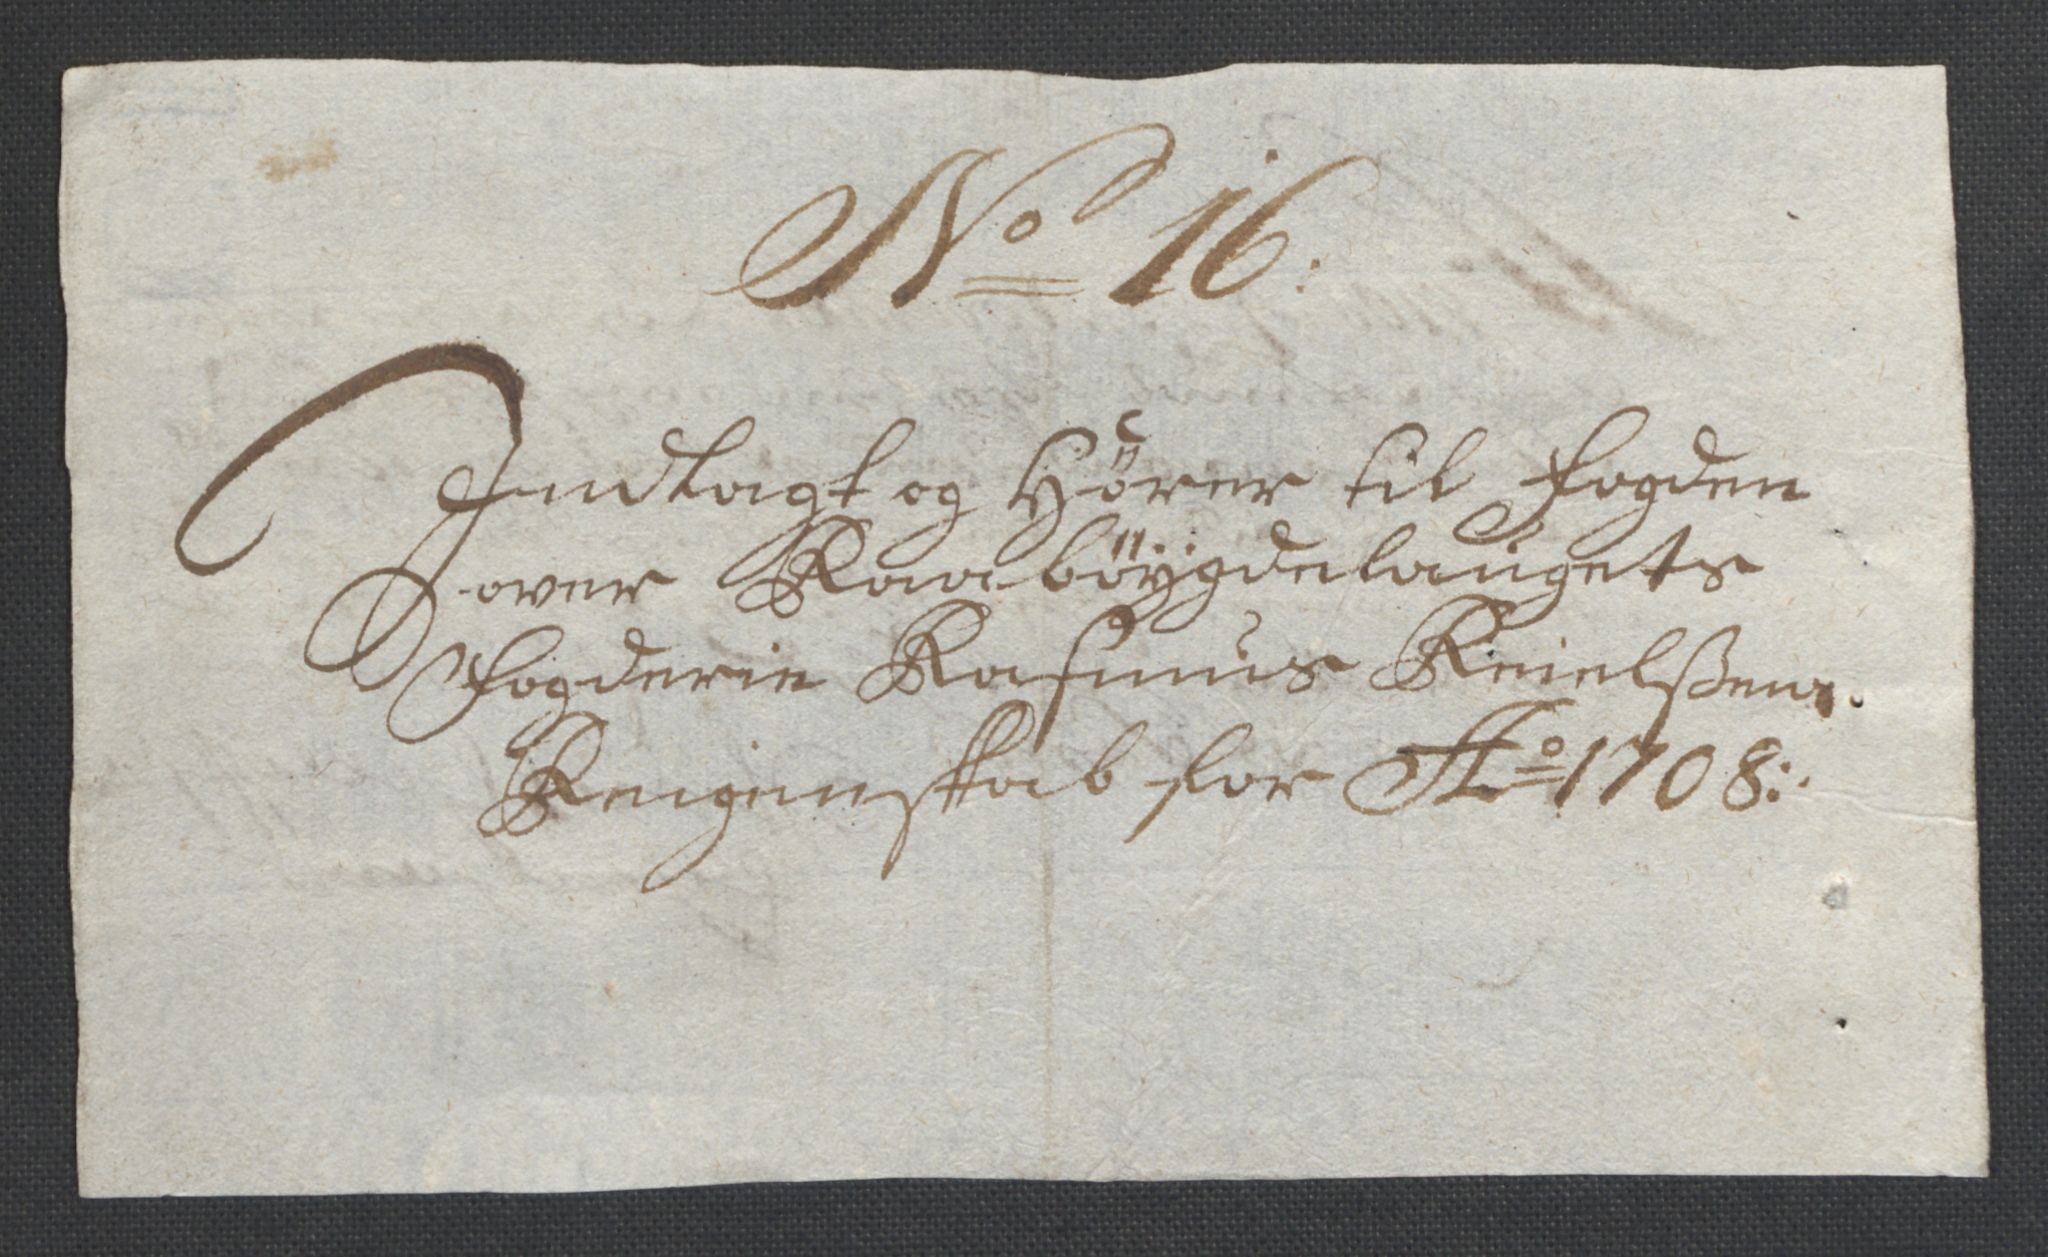 No 16:
Indlagt og Hörer til fogden
over Raaböÿgdelaugets
fogderie Rasmus Keielsßens
Reigenskab for Ao 1708: